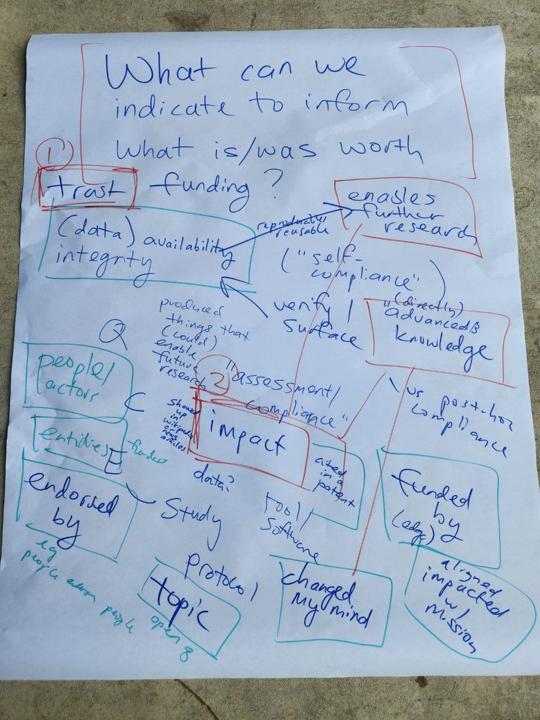 What can we
indicate to inform
what is/was worth
funding?
1
trust
enables
further
research
(data) availability
integrity
reproducible
reusable
("self-
compliance"
)
verify /
surface
(directly)
"advanced
knowledge
produced
things that
(could)
enable
future
research
Q
people/
actors
C
"assessment/
compliance"
vs post-hoc
compliance
2
impact
shows
up
in
wikipedia
articles
entities
E
funded
cited
in a
patent
data?
endorsed
by
eg
Study
tool/
software
funded
by
(edge)
protocol
topic
open q
changed
my mind
aligned
impacted
w/
mission